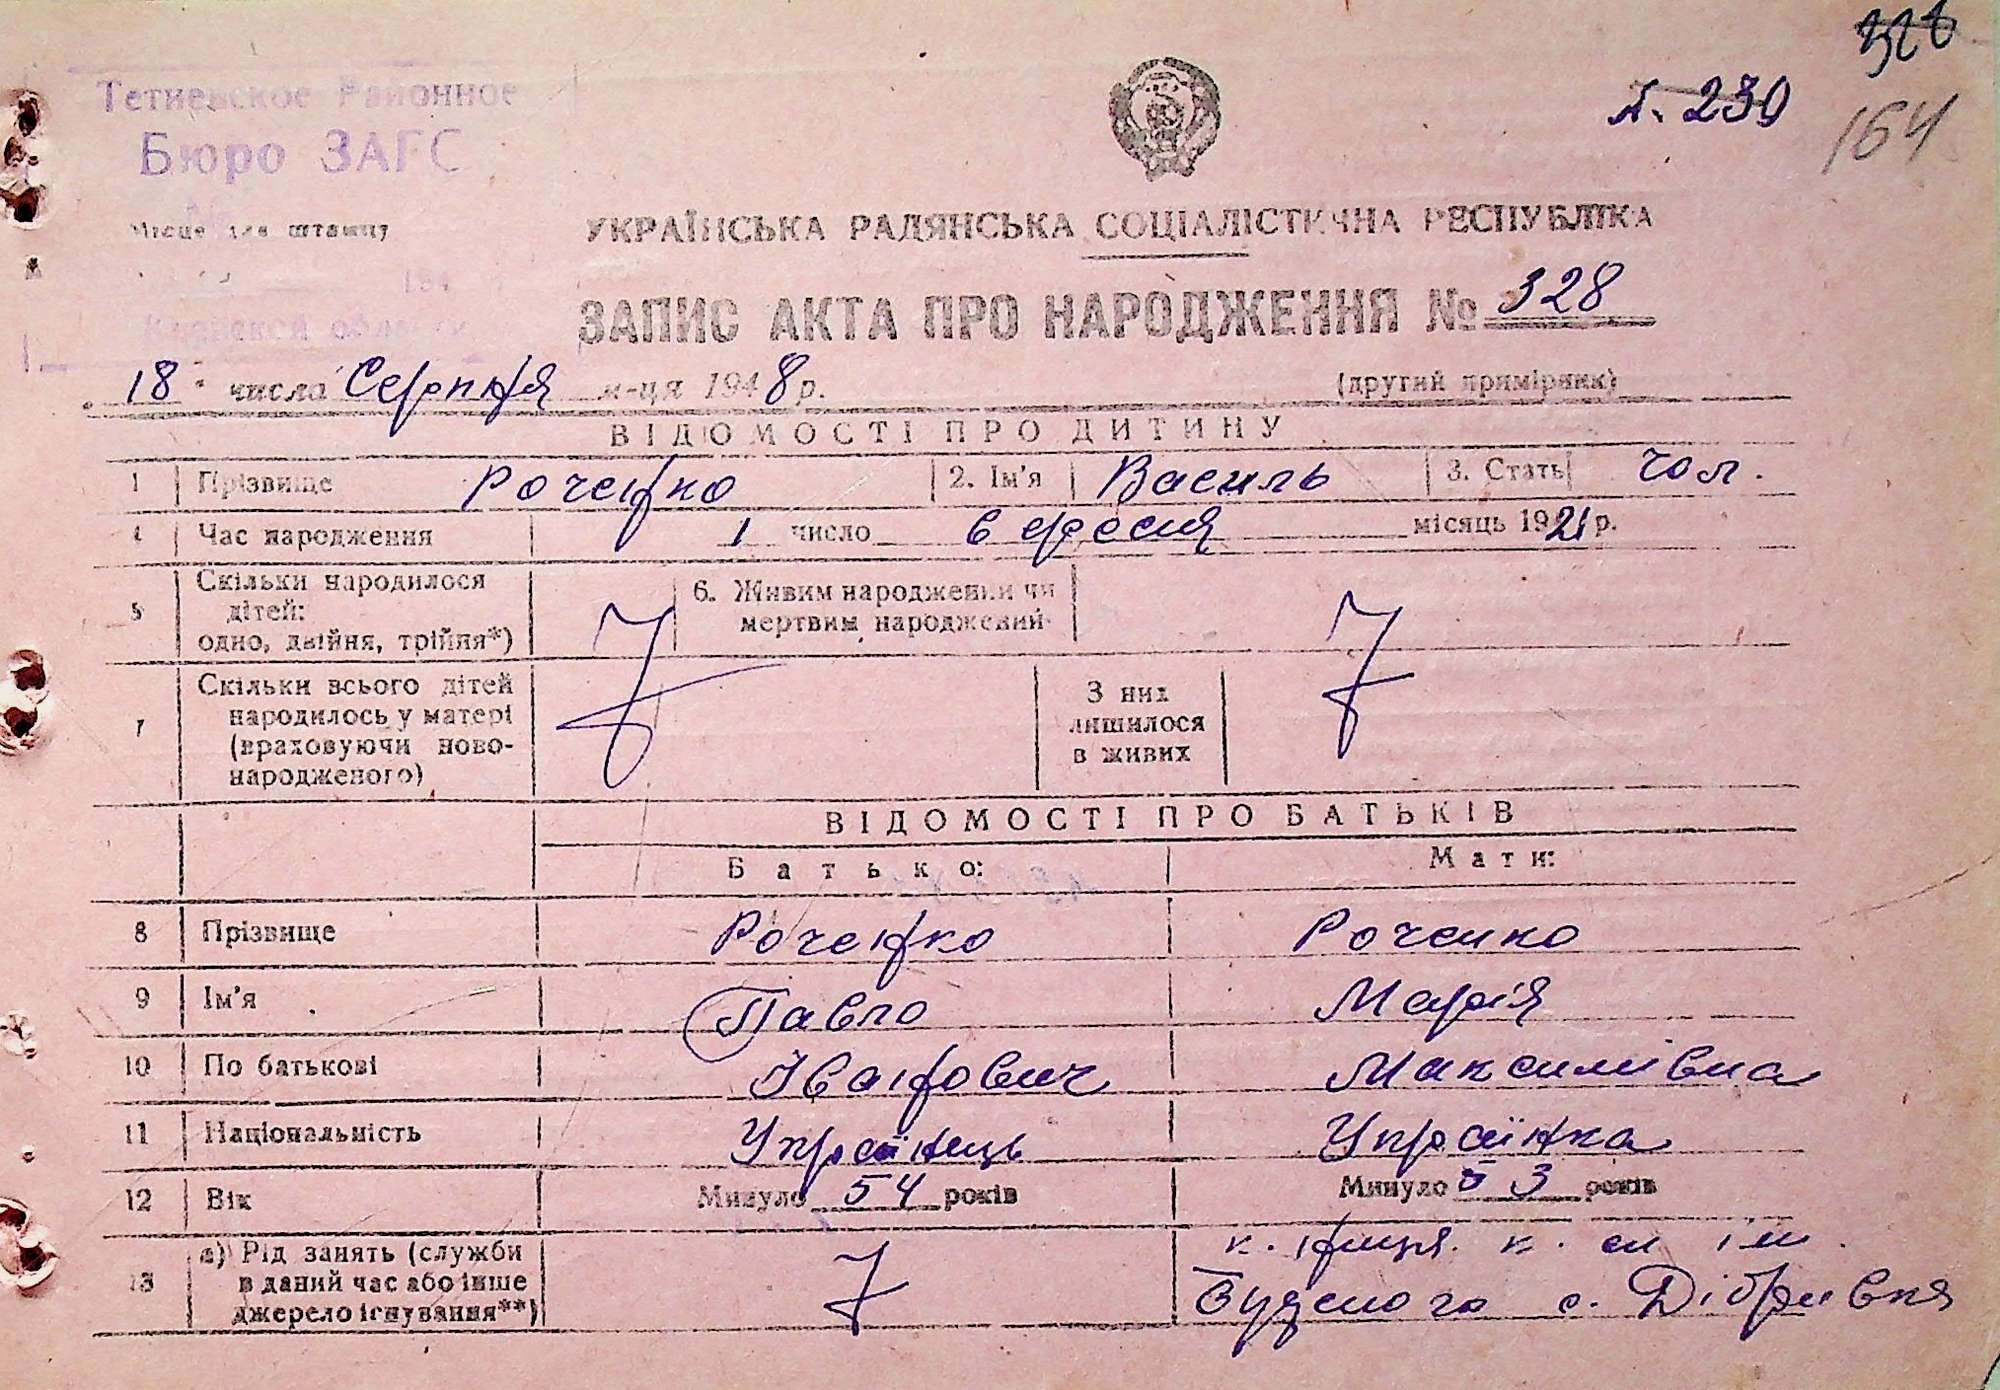 328
л. 230
164
Тетиевское Районное
Бюро ЗАГС
Місце для штампу
194
Киевской области
УКРАЇНСЬКА РАДЯНСЬКА СОЦІАЛІСТИЧНА РЕСПУБЛІКА
ЗАПИС АКТА ПРО НАРОДЖЕННЯ № 328
18 числа Серпня м-ця 1948 р. (другий примірник)
ВІДОМОСТІ ПРО ДИТИНУ
1 Прізвище Роченко 2. Ім'я Василь 3. Стать чол.
4 Час народження 1 число вересня місяць 1921 р.
5 Скільки народилося дітей: одно, двійня, трійня*) 6. Живим народжений чи мертвим народжений
7 Скільки всього дітей народилось у матері (враховуючи ново-народженого) З них лишилося в живих
ВІДОМОСТІ ПРО БАТЬКІВ
Батько: Мати:
8 Прізвище Роченко Роченко
9 Ім'я Павло Марія
10 По батькові Іванович Максимівна
11 Національність Українець Українка
12 Вік Минуло 54 років Минуло 53 років
13 а) Рід занять (служби в даний час або інше джерело існування**) к. к. ім. Будьоного с. Дібрівка